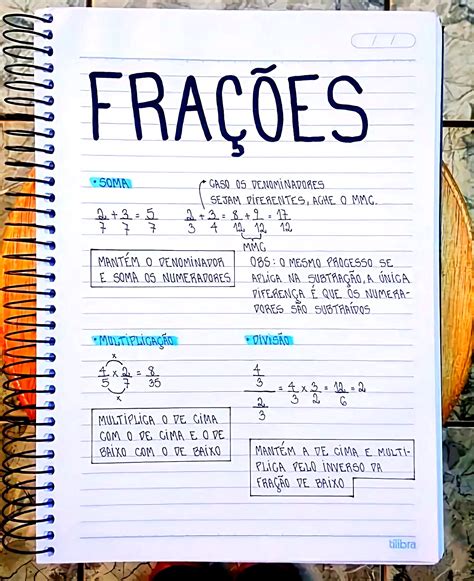 / /
FRAÇÕES
• SOMA
CASO OS DENOMINADORES
SEJAM DIFERENTES, ACHE O MMC.
2/7 + 3/7 = 5/7
2/3 + 3/4 = 8/12 + 9/12 = 17/12
MMC
MANTÉM O DENOMINADOR
E SOMA OS NUMERADORES
OBS: O MESMO PROCESSO SE
APLICA NA SUBTRAÇÃO, A ÚNICA
DIFERENÇA É QUE OS NUMERA-
DORES SÃO SUBTRAÍDOS
• MULTIPLICAÇÃO
x
4/5 x 2/7 = 8/35
x
MULTIPLICA O DE CIMA
COM O DE CIMA E O DE
BAIXO COM O DE BAIXO
• DIVISÃO
4/3 / 2/3 = 4/3 x 3/2 = 12/6 = 2
MANTÉM A DE CIMA E MULTI-
PLICA PELO INVERSO DA
FRAÇÃO DE BAIXO
tilibra